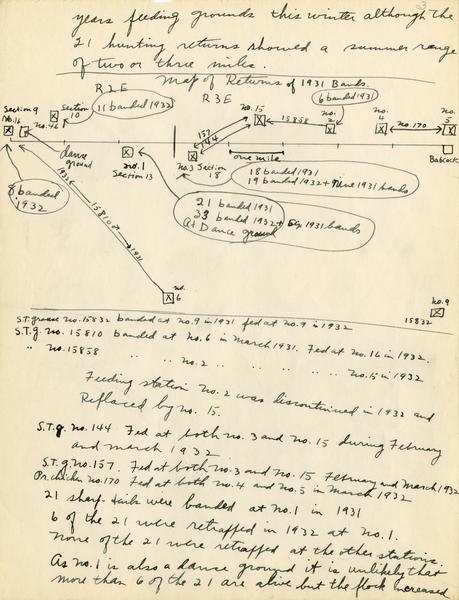 years feeding grounds this winter although the
21 hunting returns showed a summer range
of two or three miles.
Map of Returns of 1931 Bands.
R 2 E
R 3 E
Section 9
No. 16
Section 10
11 banded 1932
no. 15
6 banded 1931
no. 2
no. 4
no. 5
15858
no. 170
Babcock
157
144
one mile
dance ground
no. 1
Section 13
no. 3
Section 18
18 banded 1931
19 banded 1932 + nine 1931 bands
8 banded 1932
21 banded 1931
33 banded 1932 + six 1931 bands
at Dance ground
1932
15810
1931
no. 6
no. 9
15832
S.T. grouse no. 15832 banded at no. 9 in 1931 fed at no. 9 in 1932
S.T.g. no. 15810 banded at no. 6 in March 1931. Fed at no. 16 in 1932.
" no. 15858 .. .. no. 2 .. .. .. .. .. no. 15 in 1932
Feeding station no. 2 was discontinued in 1932 and
Replaced by no. 15.
S.T.g. no. 144 Fed at both no. 3 and no. 15 during February
and march 1932
S.T.g. no. 157. Fed at both no. 3 and no. 15 February and March 1932
Pr. chicken no. 170 Fed at both no. 4 and no. 5 in March 1932
21 sharp-tails were banded at no. 1 in 1931
6 of the 21 were retrapped in 1932 at no. 1.
None of the 21 were retrapped at the other stations.
As no. 1 is also a dance ground it is unlikely that
more than 6 of the 21 are alive but the flock increased